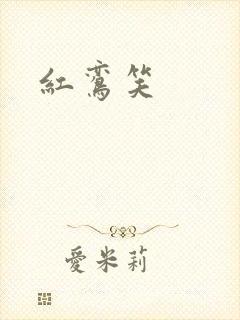 紅鸞笑
愛米莉